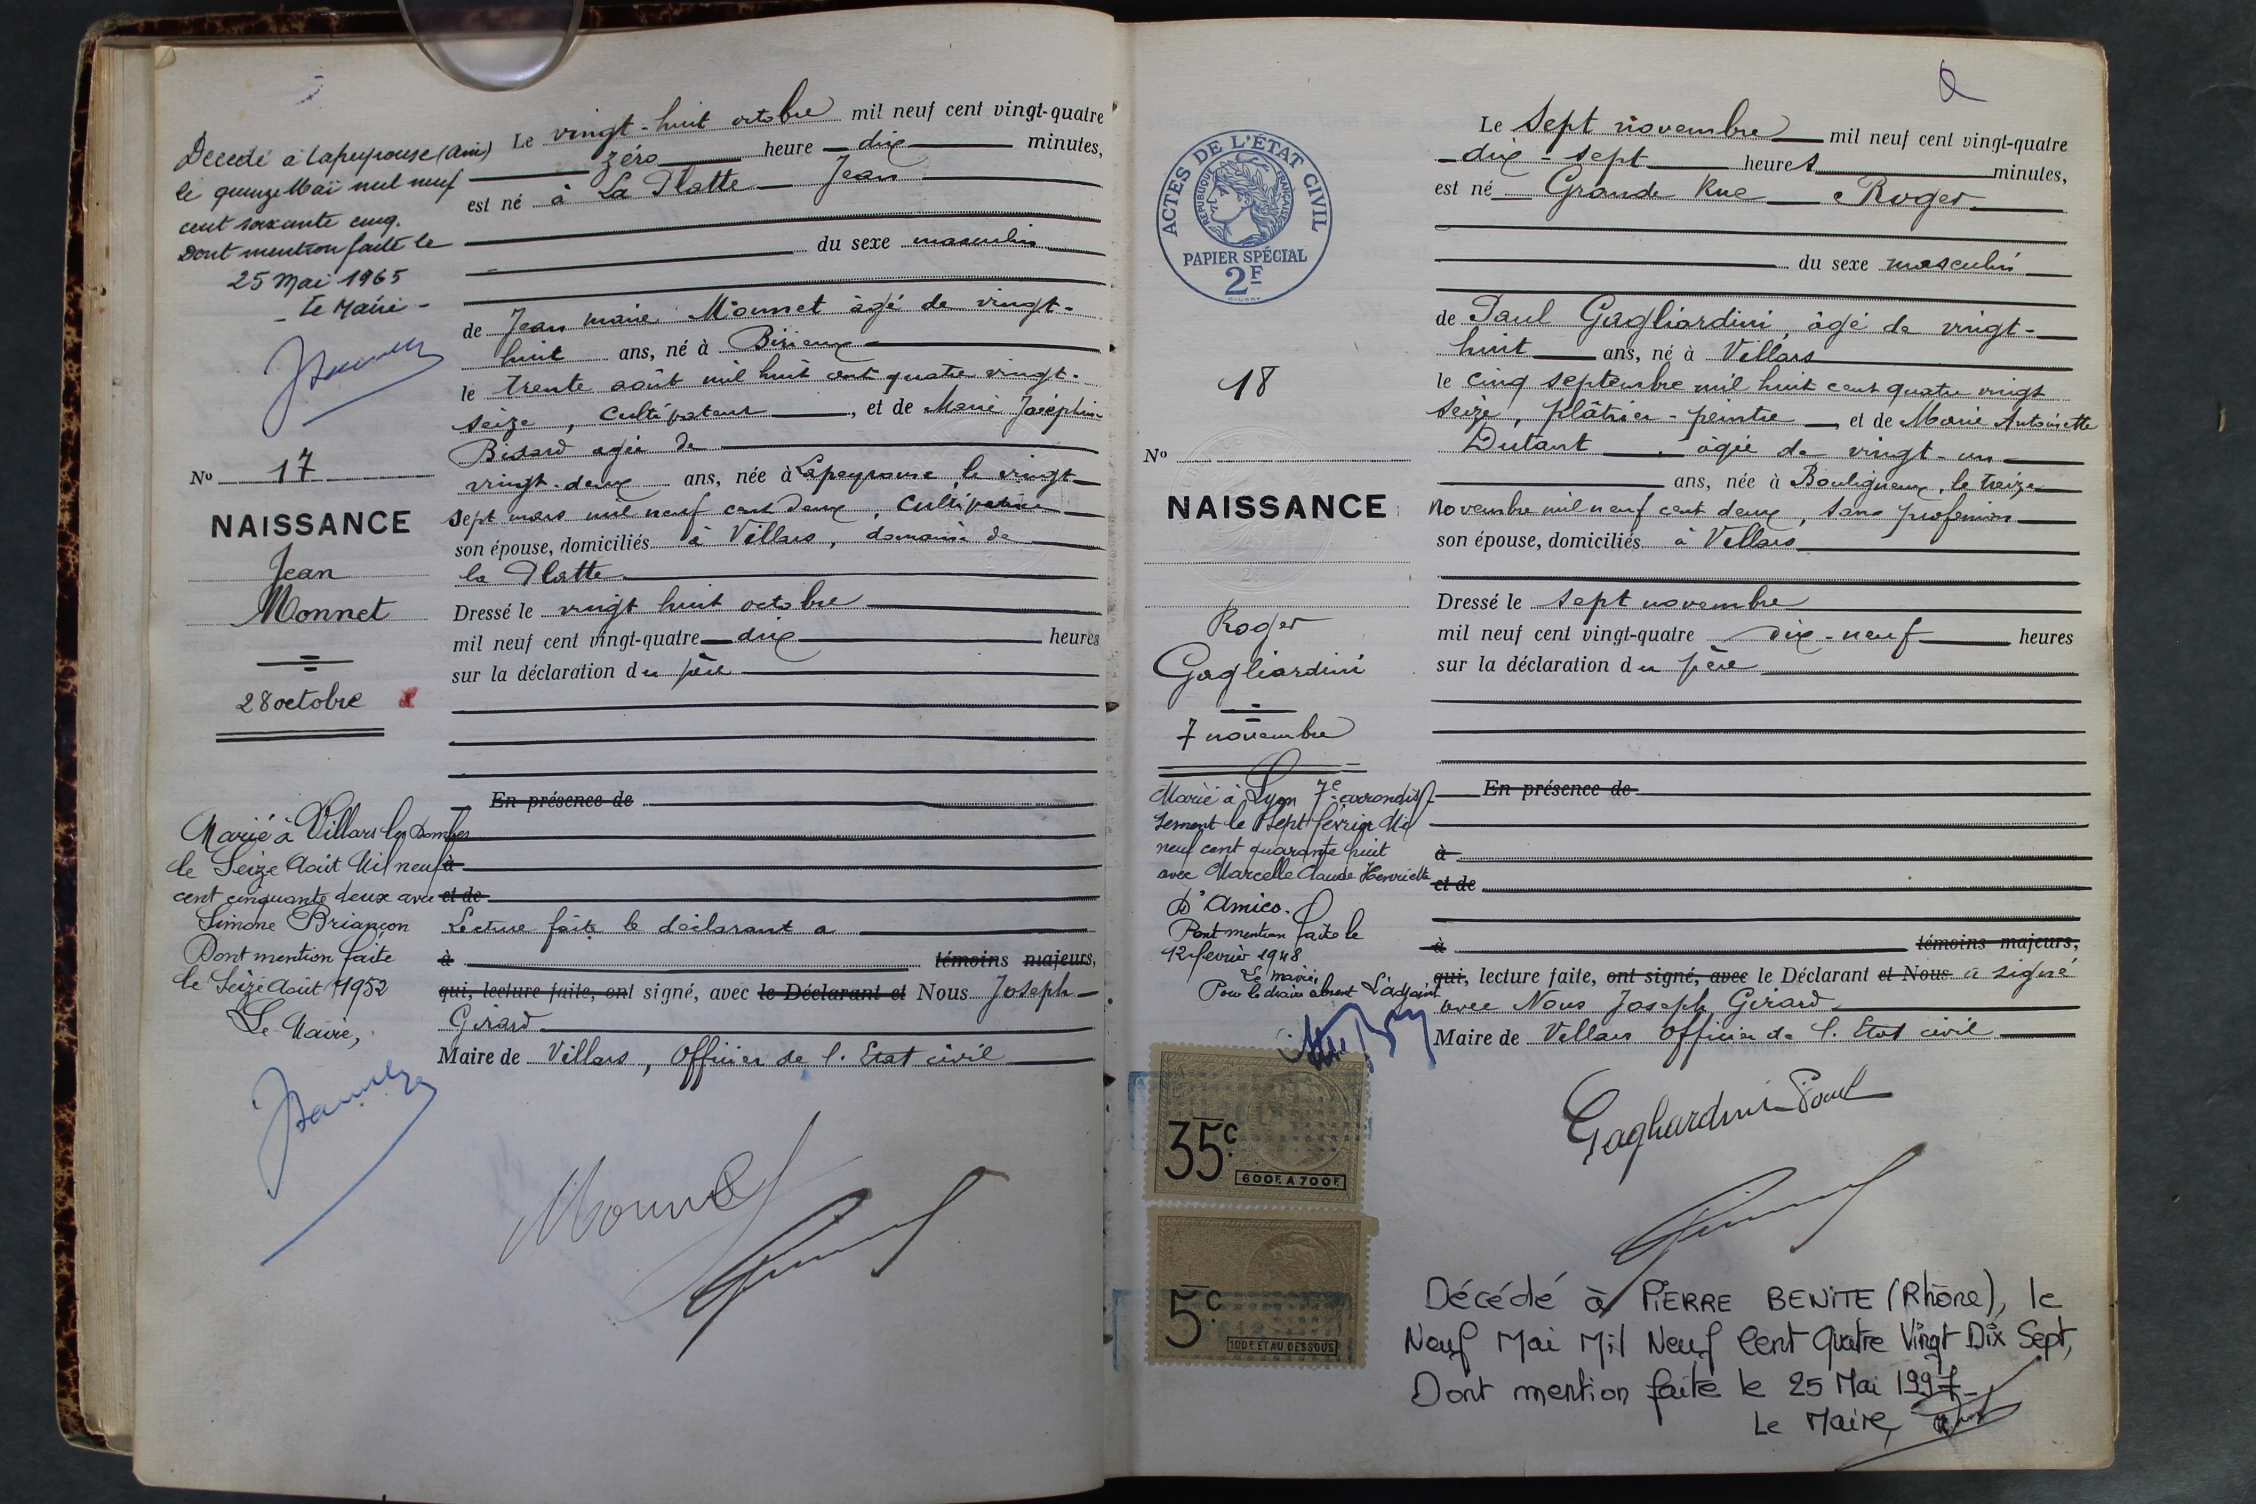 Décédé à Lapeyrouse (Ain)
le quinze Mai mil neuf
cent soixante cinq.
Dont mention faite le
25 Mai 1965
- Le Maire -
No 17
NAISSANCE
Jean
Monnet
28 octobre
Marié à Villars les Dombes
le Seize Août Mil neuf
cent cinquante deux avec
Simone Briançon
Dont mention faite
le Seize Août 1952
Le Maire,
Le vingt-huit octobre mil neuf cent vingt-quatre
zéro heure dix minutes,
est né à La Platte Jean
du sexe masculin
de Jean Marie Monnet âgé de vingt-
huit ans, né à Birieux
le trente août mil huit cent quatre vingt-
seize, cultivateur, et de Marie Joséphine
âgée de
vingt-deux ans, née à Lapeyrouse le vingt
sept mars mil neuf cent deux, cultivatrice
son épouse, domiciliés à Villars, domaine de
la Platte
Dressé le vingt huit octobre
mil neuf cent vingt-quatre dix heures
sur la déclaration du père
En présence de
à
et de
Lecture faite le déclarant a
à témoins majeurs,
qui, lecture faite, ont signé, avec le Déclarant et Nous Joseph
Girard
Maire de Villars, Officier de l'Etat civil
Monnet
ACTES DE L'ÉTAT CIVIL
RÉPUBLIQUE FRANÇAISE
PAPIER SPÉCIAL
2F
18
No
NAISSANCE
Roger
Gagliardini
7 novembre
Marié à Lyon 7e arrondis-
sement le Sept février Mil
neuf cent quarante huit
avec Marcelle Claude Henriette
D'Amico.
Dont mention faite le
12 février 1948
Le maire,
Pour le Maire absent L'adjoint
35c
600F. A 700F.
5c
100F. ET AU DESSOUS
Le sept novembre mil neuf cent vingt-quatre
dix-sept heures minutes,
est né Grande Rue Roger
du sexe masculin
de Paul Gagliardini, âgé de vingt-
huit ans, né à Villars
le cinq septembre mil huit cent quatre vingt
seize, plâtrier-peintre, et de Marie Antoinette
Dutant, âgée de vingt-un
ans, née à Bouligneux, le treize
novembre mil neuf cent deux, sans profession
son épouse, domiciliés à Villars
Dressé le sept novembre
mil neuf cent vingt-quatre dix-neuf heures
sur la déclaration du père
En présence de
à
et de
à témoins majeurs,
qui, lecture faite, ont signé, avec le Déclarant et Nous a signé
avec Nous Joseph Girard
Maire de Villars Officier de l'Etat civil
Gagliardini Paul
Décédé à PIERRE BENITE (Rhône), le
Neuf Mai Mil Neuf Cent Quatre Vingt Dix Sept,
Dont mention faite le 25 Mai 1997
Le Maire,